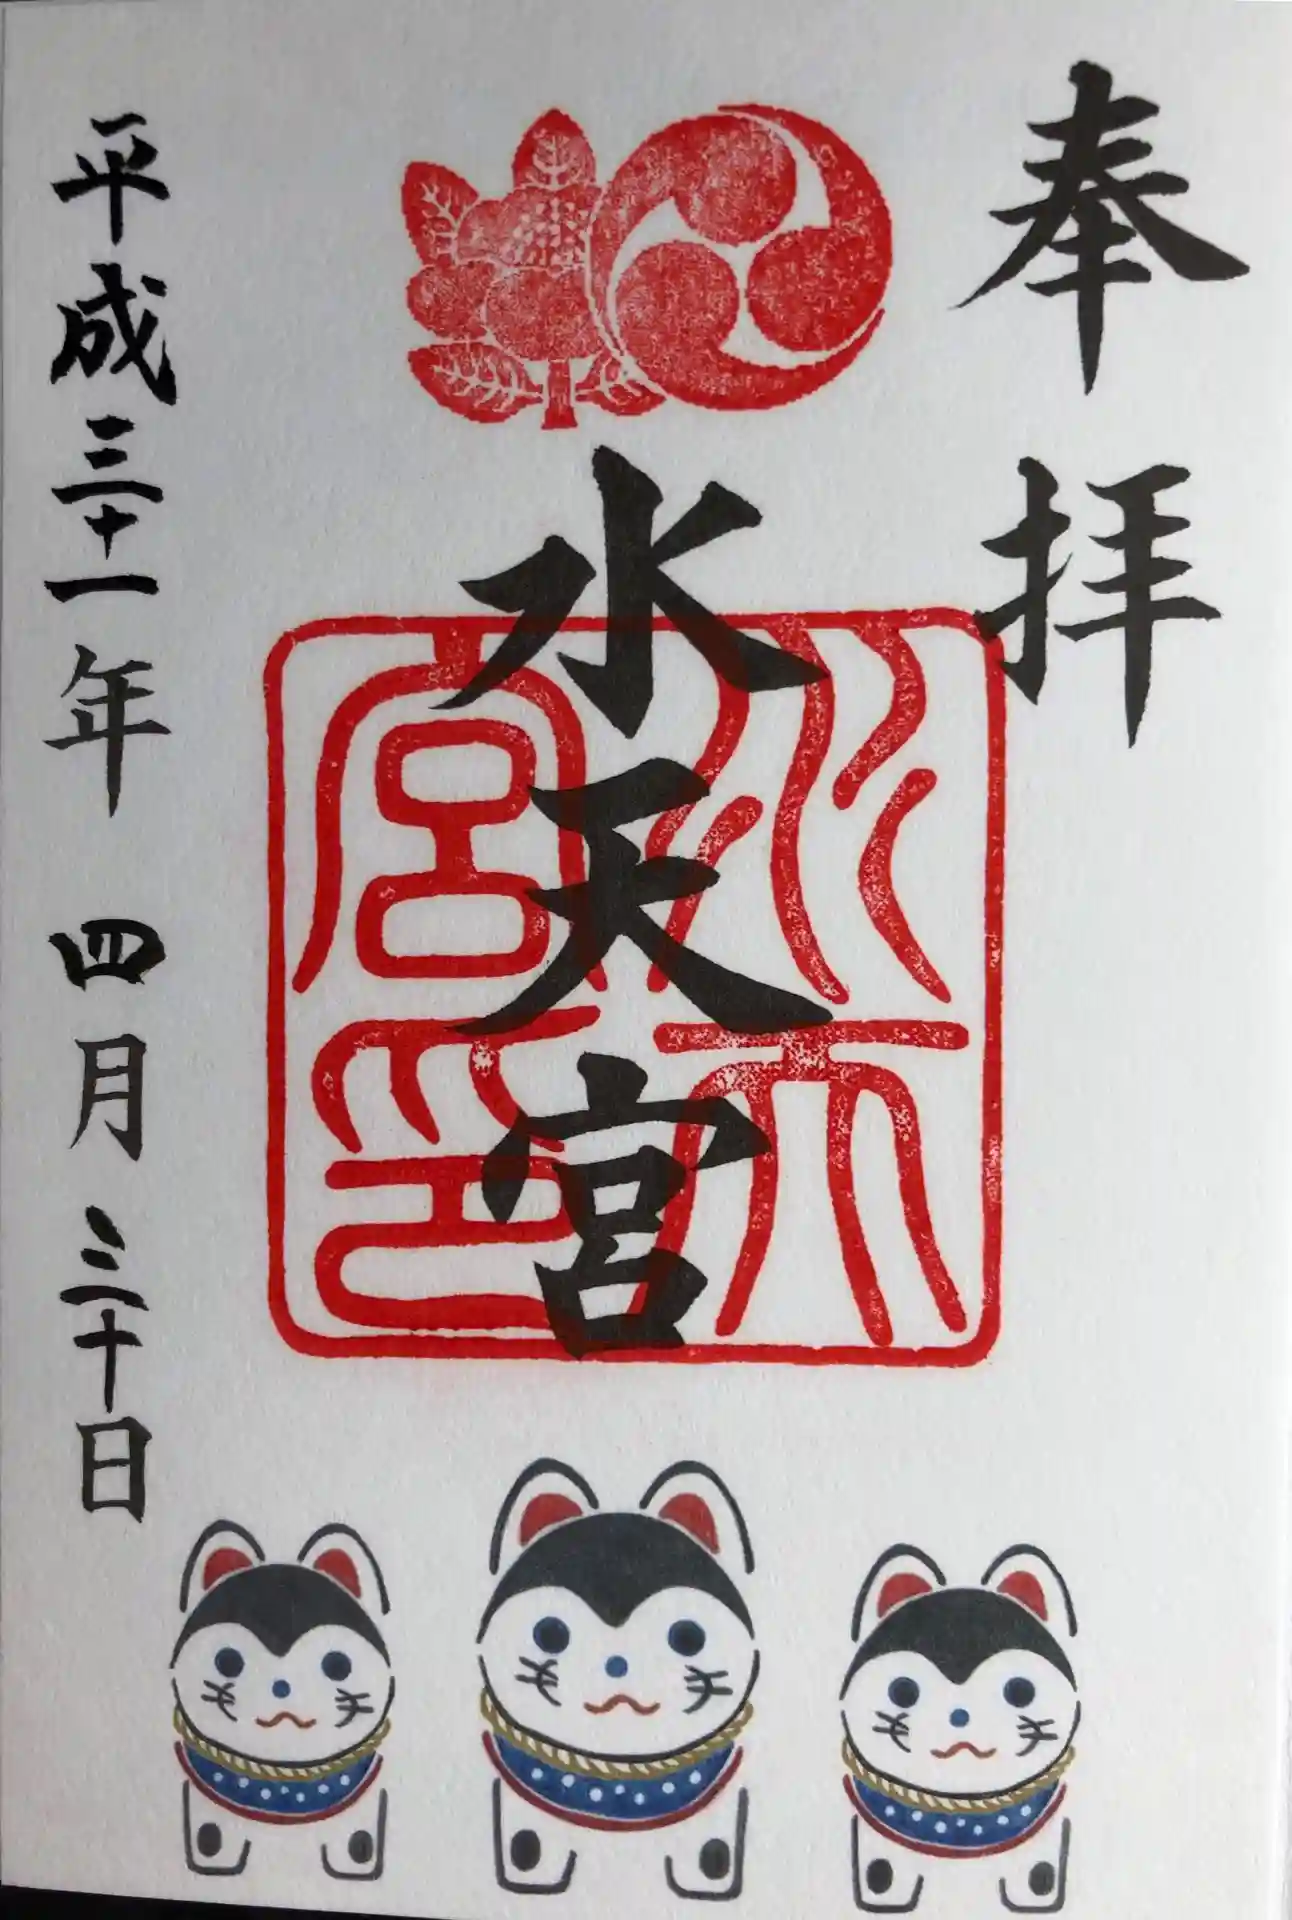 奉拝
水天宮
水天宮印
平成三十一年 四月 三十日